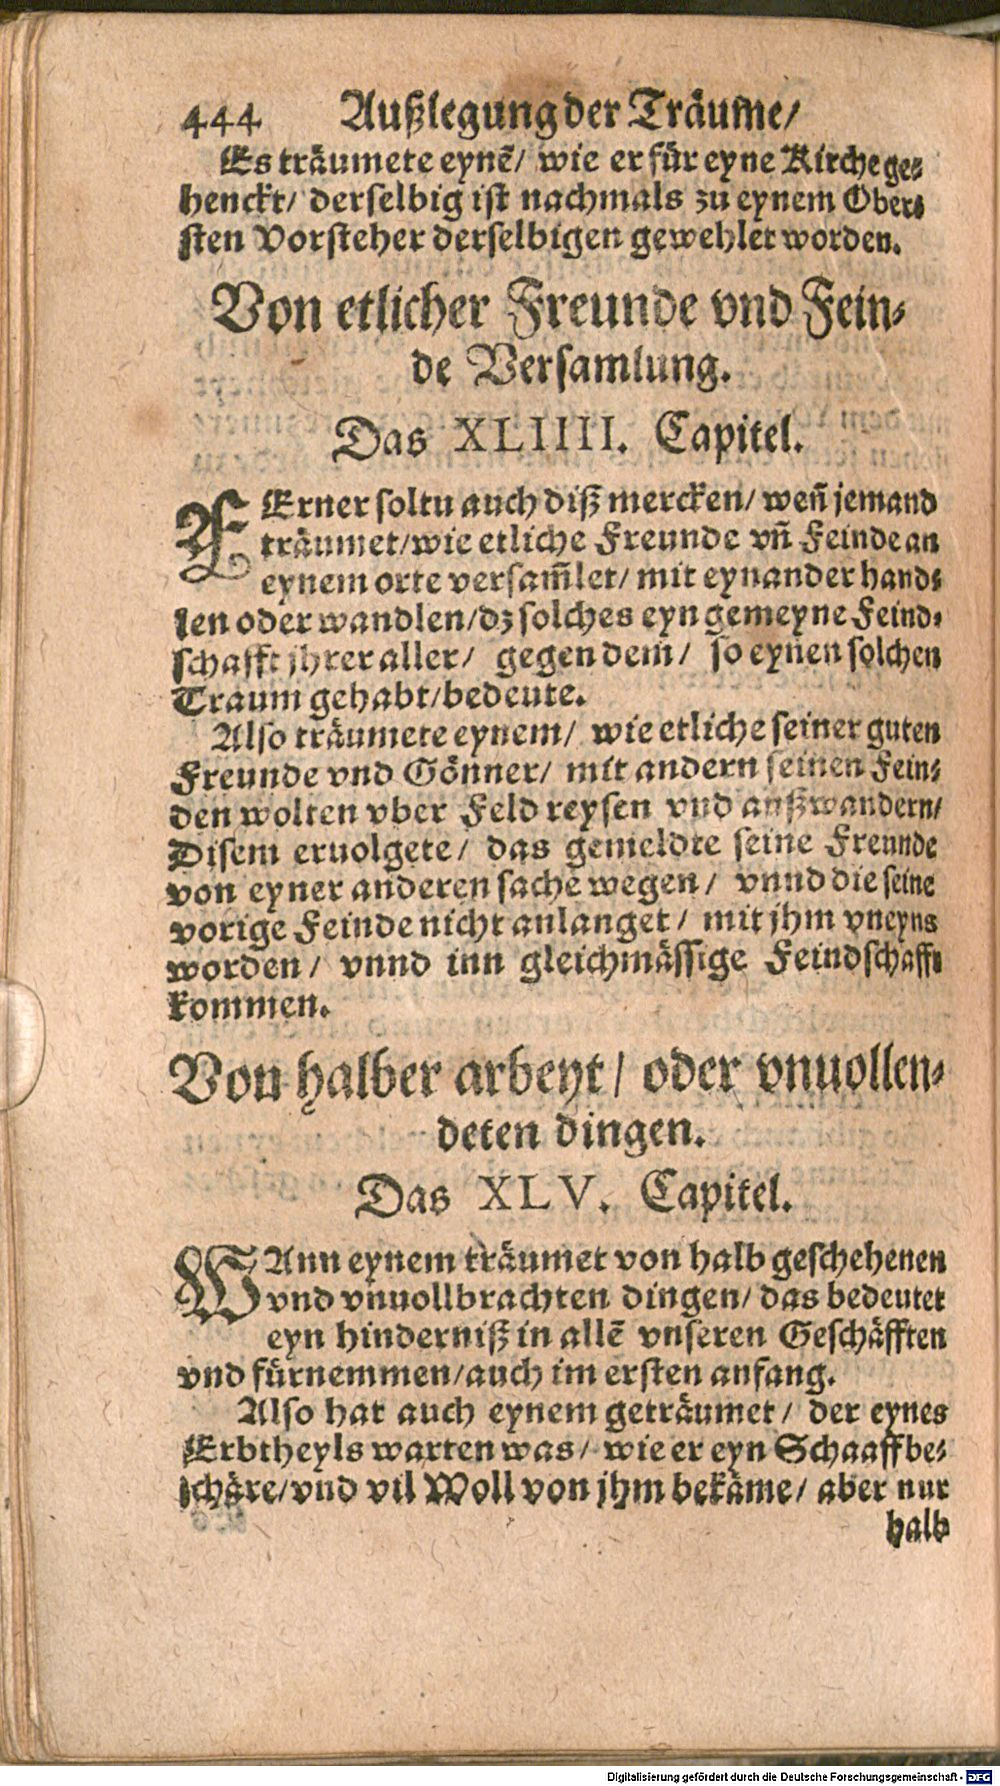 444 Außlegung der Träume/
Es träumete eynẽ/ wie er für eyne Kirche ge-
henckt/ derselbig ist nachmals zu eynem Ober-
sten Vorsteher derselbigen gewehlet worden.
Von etlicher Freunde vnd Fein-
de Versamlung.
Das XLIIII. Capitel.
FErner soltu auch diß mercken/ weñ jemand
träumet/wie etliche Freunde vñ Feinde an
eynem orte versam̃let/ mit eynander hand-
len oder wandlen/dz solches eyn gemeyne Feind-
schafft jhrer aller/ gegen dem/ so eynen solchen
Traum gehabt/bedeute.
Also träumete eynem/ wie etliche seiner guten
Freunde vnd Gönner/ mit andern seinen Fein-
den wolten vber Feld reysen vnd außwandern/
Disem eruolgete/ das gemeldte seine Freunde
von eyner anderen sache wegen/ vnnd die seine
vorige Feinde nicht anlanget/ mit jhm vneyns
worden/ vnnd inn gleichmässige Feindschafft
kommen.
Von halber arbeyt/ oder vnuollen-
deten dingen.
Das XLV. Capitel.
WAnn eynem träumet von halb geschehenen
vnd vnuollbrachten dingen/ das bedeutet
eyn hinderniß in allẽ vnseren Geschäfften
vnd fürnemmen/auch im ersten anfang.
Also hat auch eynem geträumet/ der eynes
Erbtheyls warten was/ wie er eyn Schaaff be-
schäre/vnd vil Woll von jhm bekäme/ aber nur
halb
Digitalisierung gefördert durch die Deutsche Forschungsgemeinschaft - DFG